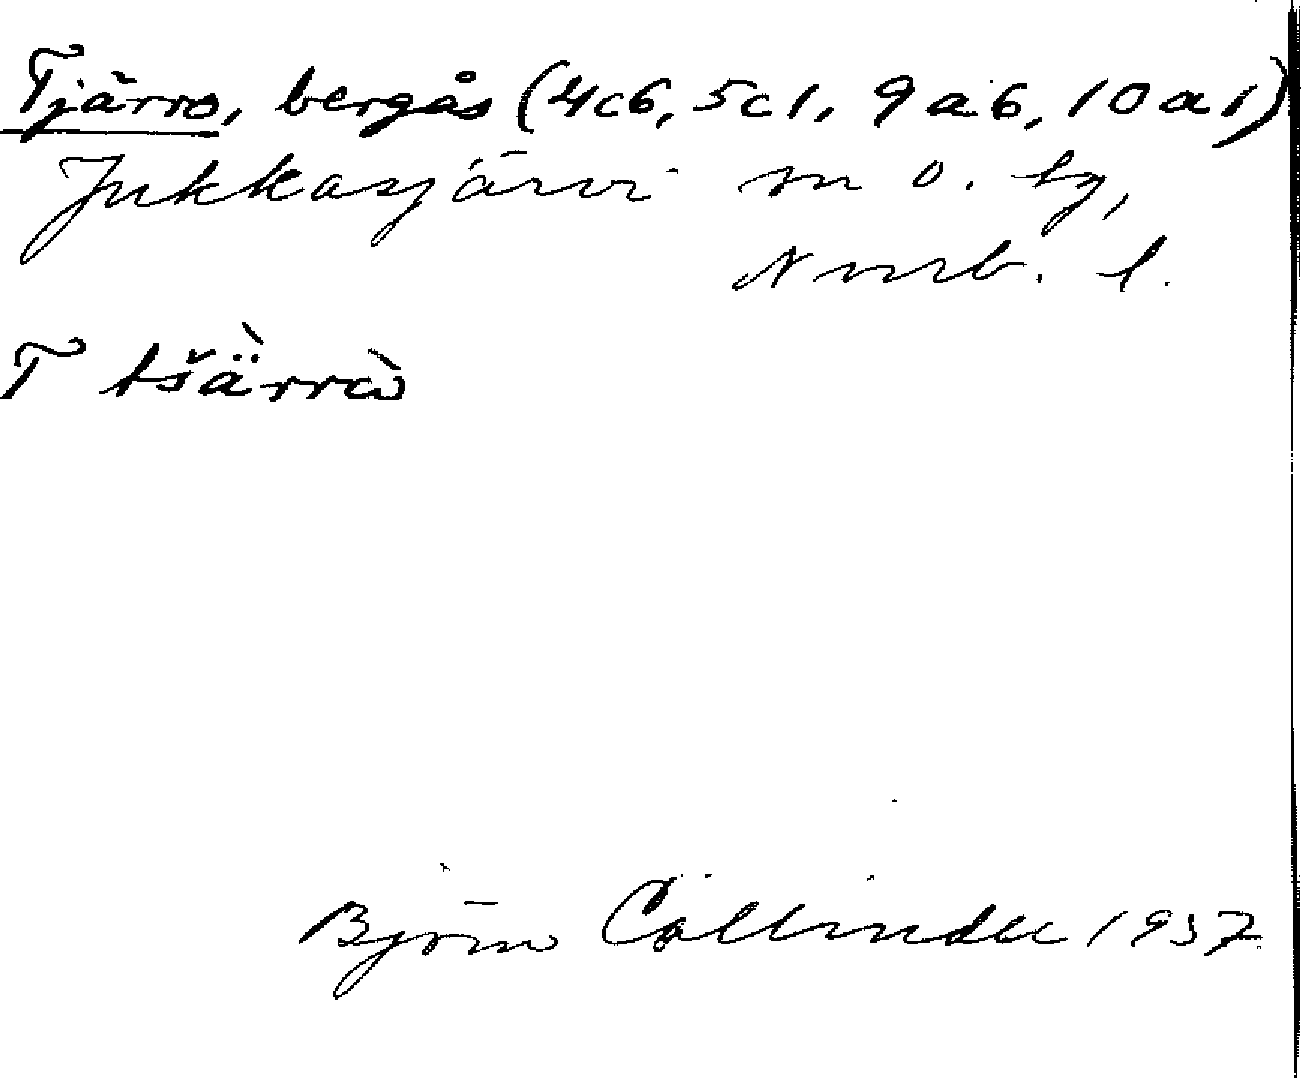 Tjärro, bergås (4c6, 5c1, 9a6, 10a1)
Jukkasjärvi sn o. lg,
Norrb. l.
T tšä̀rrò
Björn Collinder 1937